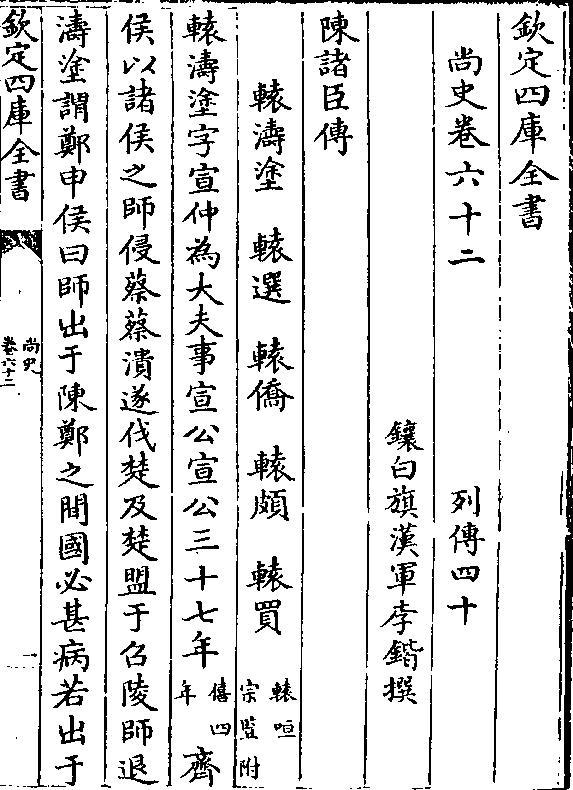 欽定四庫全書
尚史卷六十二　列傳四十
鑲白旗漢軍李鍇撰
陳諸臣傳
轅濤塗　轅選　轅僑　轅頗　轅買　轅咺　宗豎附
轅濤塗字宣仲為大夫事宣公宣公三十七年僖四年齊
侯以諸侯之師侵蔡蔡潰遂伐楚及楚盟于召陵師退
濤塗謂鄭申侯曰師出于陳鄭之間國必甚病若出于
欽定四庫全書
尚史
卷六十二
一